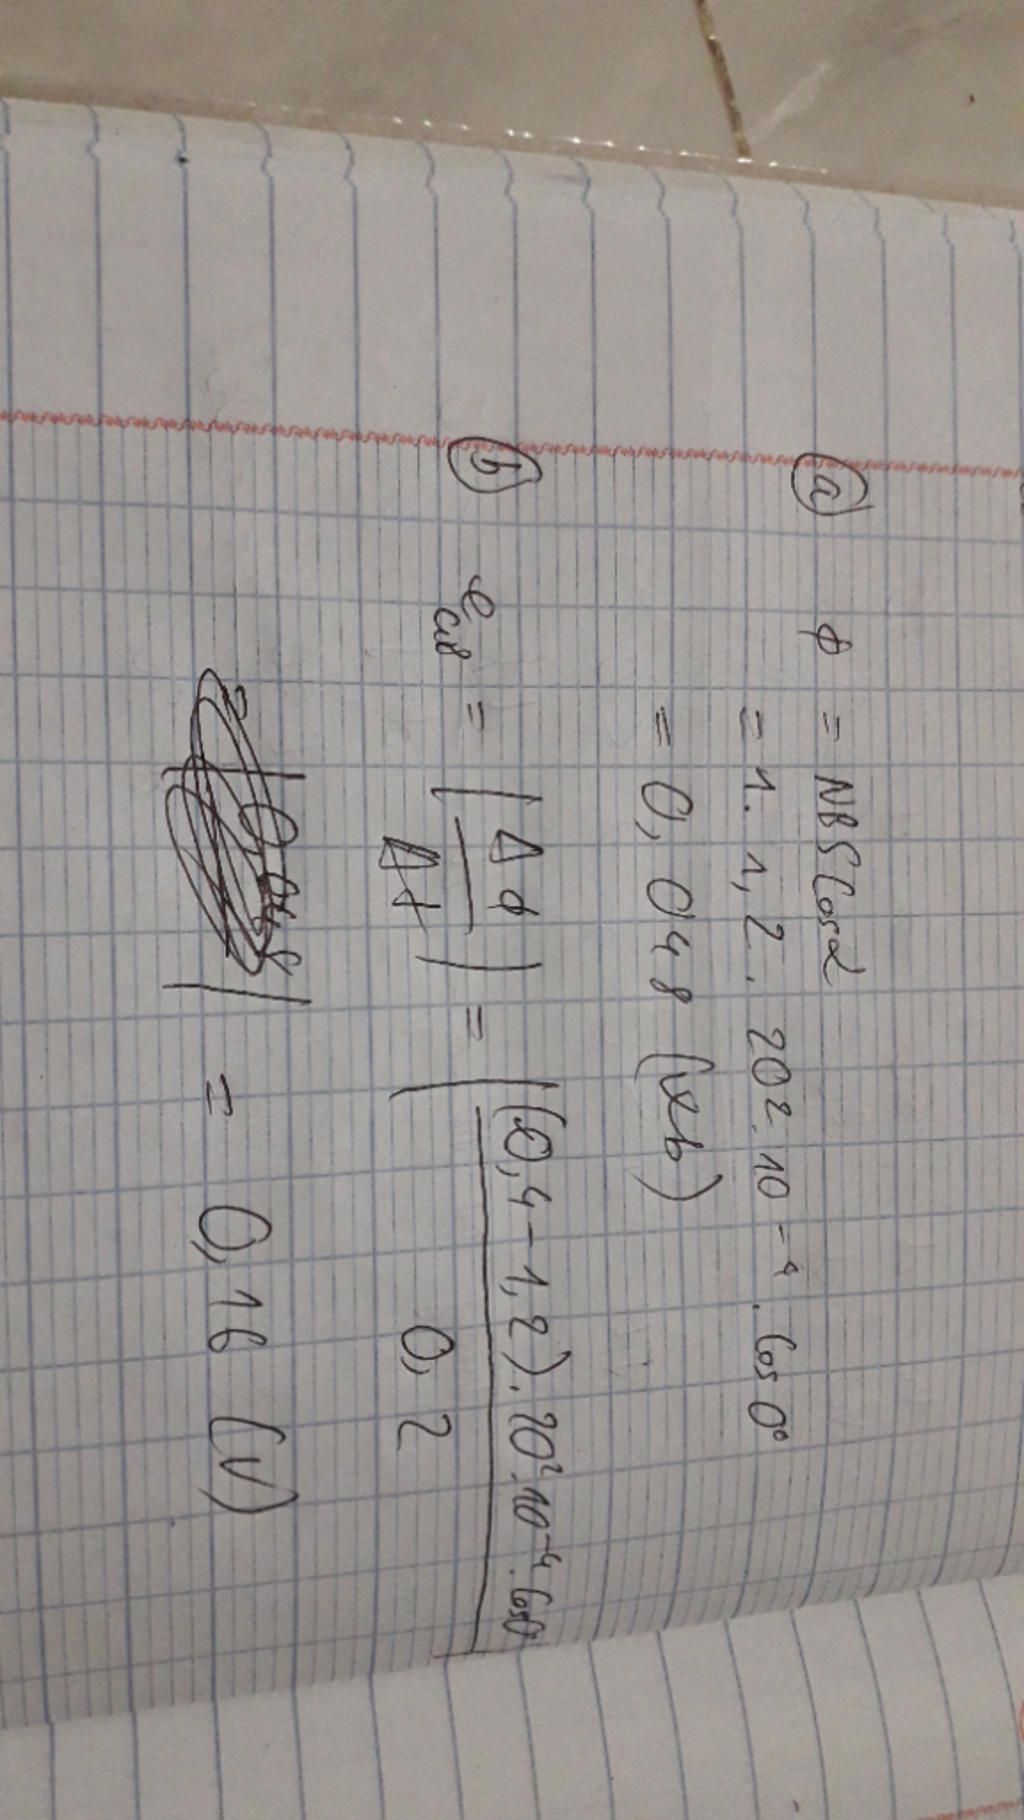 (a) φ = NBS Cosα
= 1. 1,2. 20². 10⁻⁴. Cos 0°
= 0,048 (wb)
(b) e_cư = |Δφ / Δt| = |(0,4 - 1,2). 20². 10⁻⁴. Cos0° / 0,2|
= 0,16 (V)